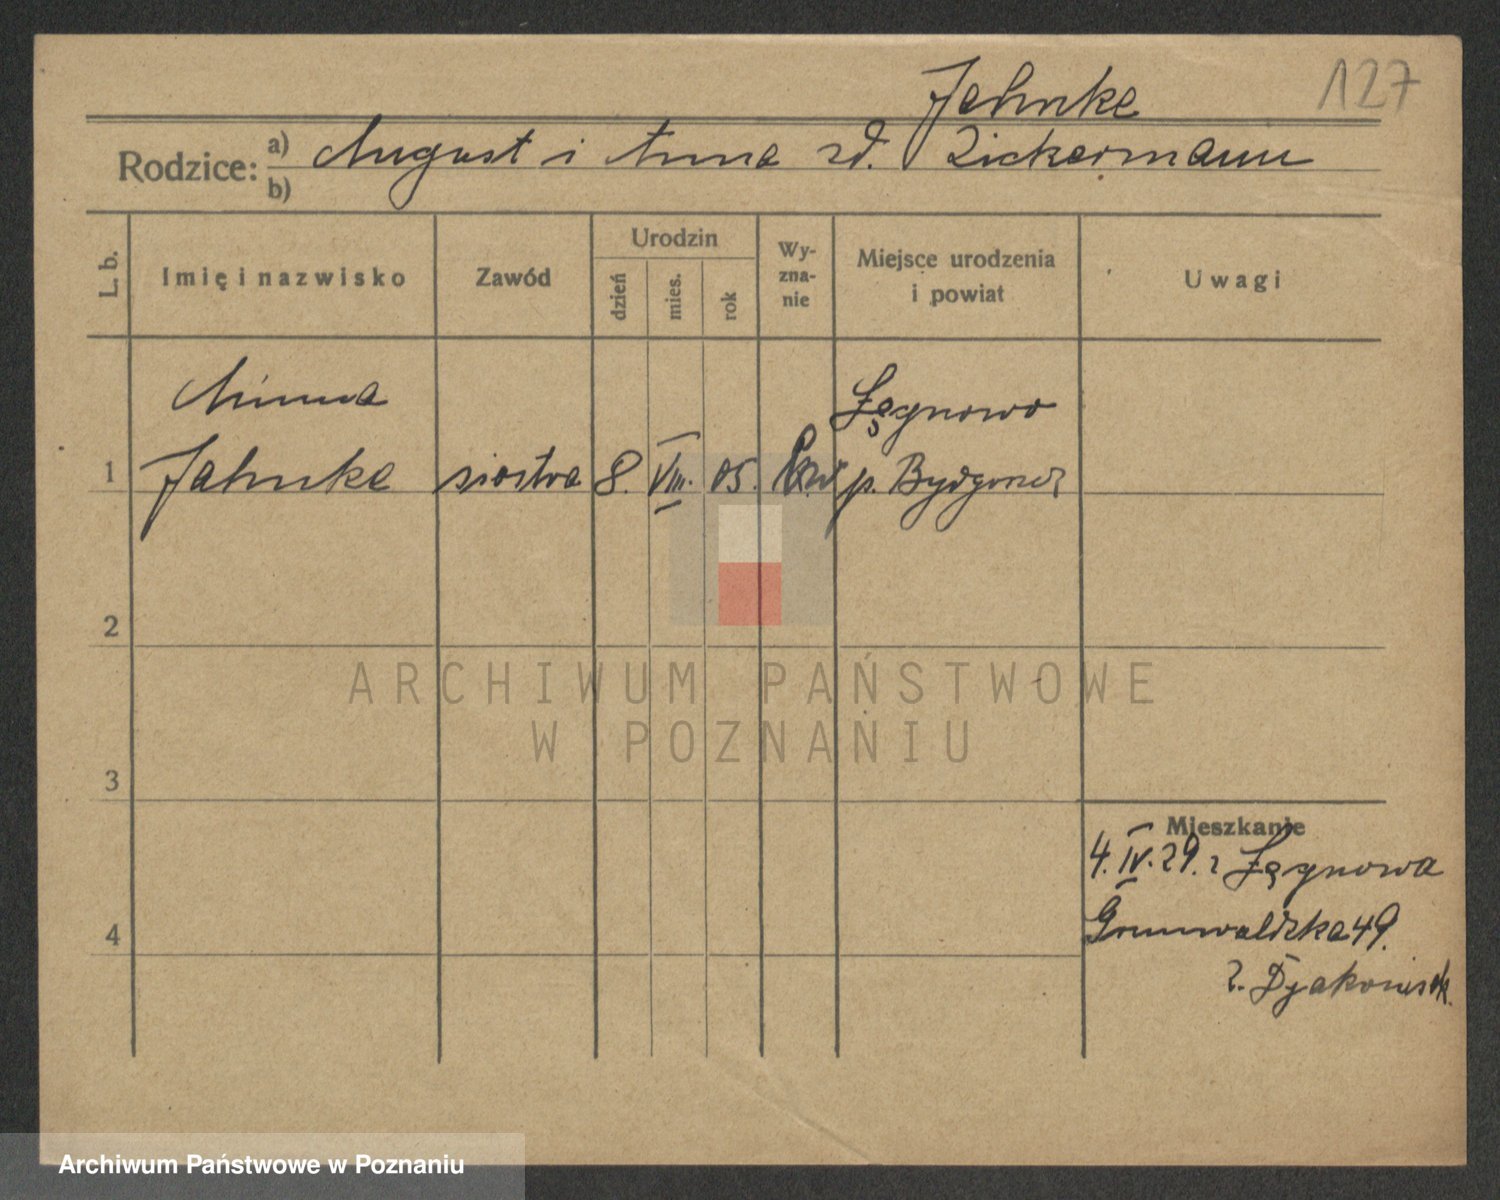 Jahnke 127
Rodzice: a) August i Anna zd. Zickermann
b)
L. b. Imię i nazwisko Zawód Urodzin dzień mies. rok Wyzna-nie Miejsce urodzenia i powiat Uwagi
Minna Łęgnowo
1 Jahnke siostra 8. VIII. 05. p. Bydgoszcz
2
3
4
ARCHIWUM PAŃSTWOWE
W POZNANIU
Mieszkanie
4. IV. 29. z Łęgnowa
Grunwaldzka 49.
z. Dyakonisek.
Archiwum Państwowe w Poznaniu